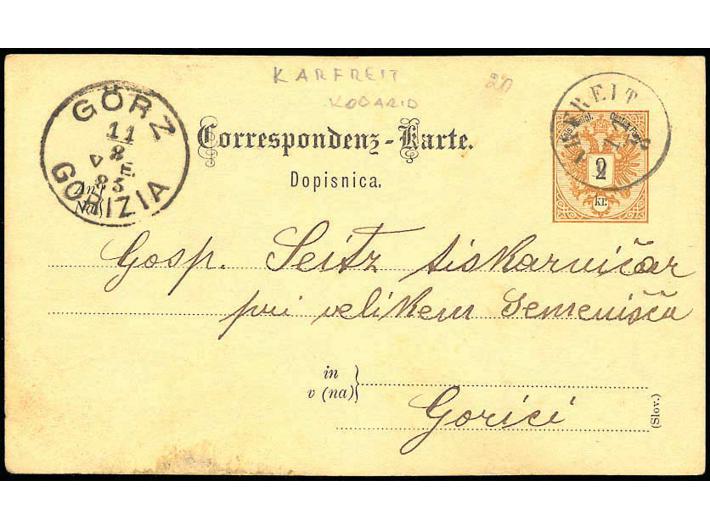 KARFREIT
20
KOBARID
GÖRZ
11
8
V E
83
GORIZIA
KARFREIT
Correspondenz-Karte.
Dopisnica.
2
kr.
An
Na
Gosp. Seitz tiskarničar
pri velikem Semenišča
in
v (na)
Gorici
(Slov.)